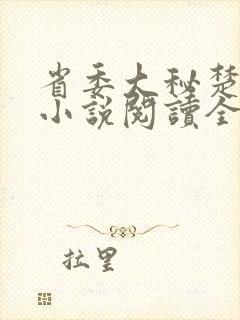 省委大秘楚
小説閱讀全
拉里